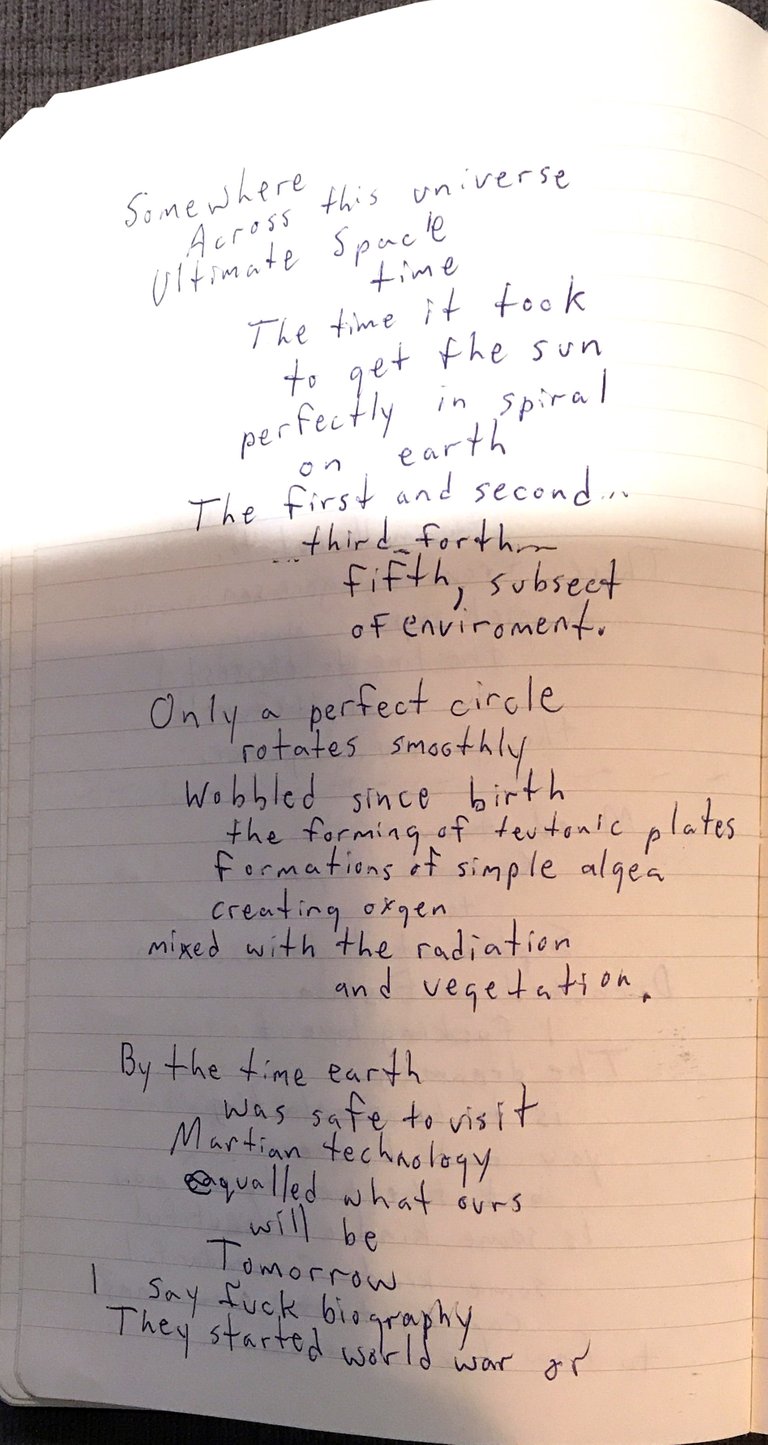 Somewhere
Across this universe
Ultimate Space
time
The time it took
to get the sun
perfectly in spiral
on earth
The first and second...
...third_forth
fifth, subsect
of enviroment.
Only a perfect circle
rotates smoothly
Wobbled since birth
the forming of teutonic plates
formations of simple algea
creating oxgen
mixed with the radiation
and vegetation.
By the time earth
was safe to visit
Martian technology
equalled what ours
will be
Tomorrow
I say fuck biography
They started world war or